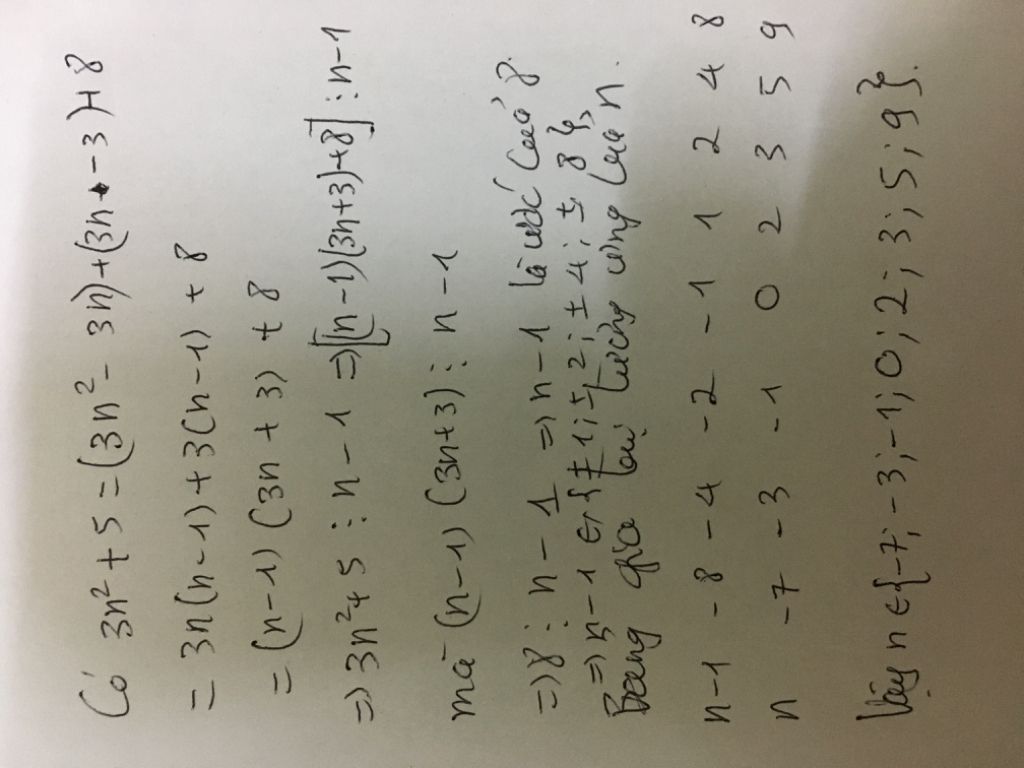 Có 3n² + 5 = (3n² - 3n) + (3n - 3) + 8
= 3n(n-1) + 3(n-1) + 8
= (n-1) (3n + 3) + 8
=> 3n² + 5 ⋮ n - 1 => [(n-1)(3n+3)+8] ⋮ n-1
mà (n-1) (3n+3) ⋮ n - 1
=> 8 ⋮ n - 1 => n - 1 là ước của 8.
=> n - 1 ∈ {±1; ±2; ±4; ±8},
Bảng giá trị tương ứng của n.
n-1 -8 -4 -2 -1 1 2 4 8
n -7 -3 -1 0 2 3 5 9
Vậy n ∈ {-7; -3; -1; 0; 2; 3; 5; 9}.